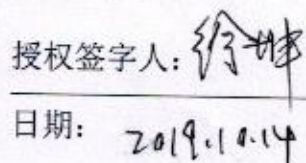 授权签字人：徐坤
日期： 2019.10.14